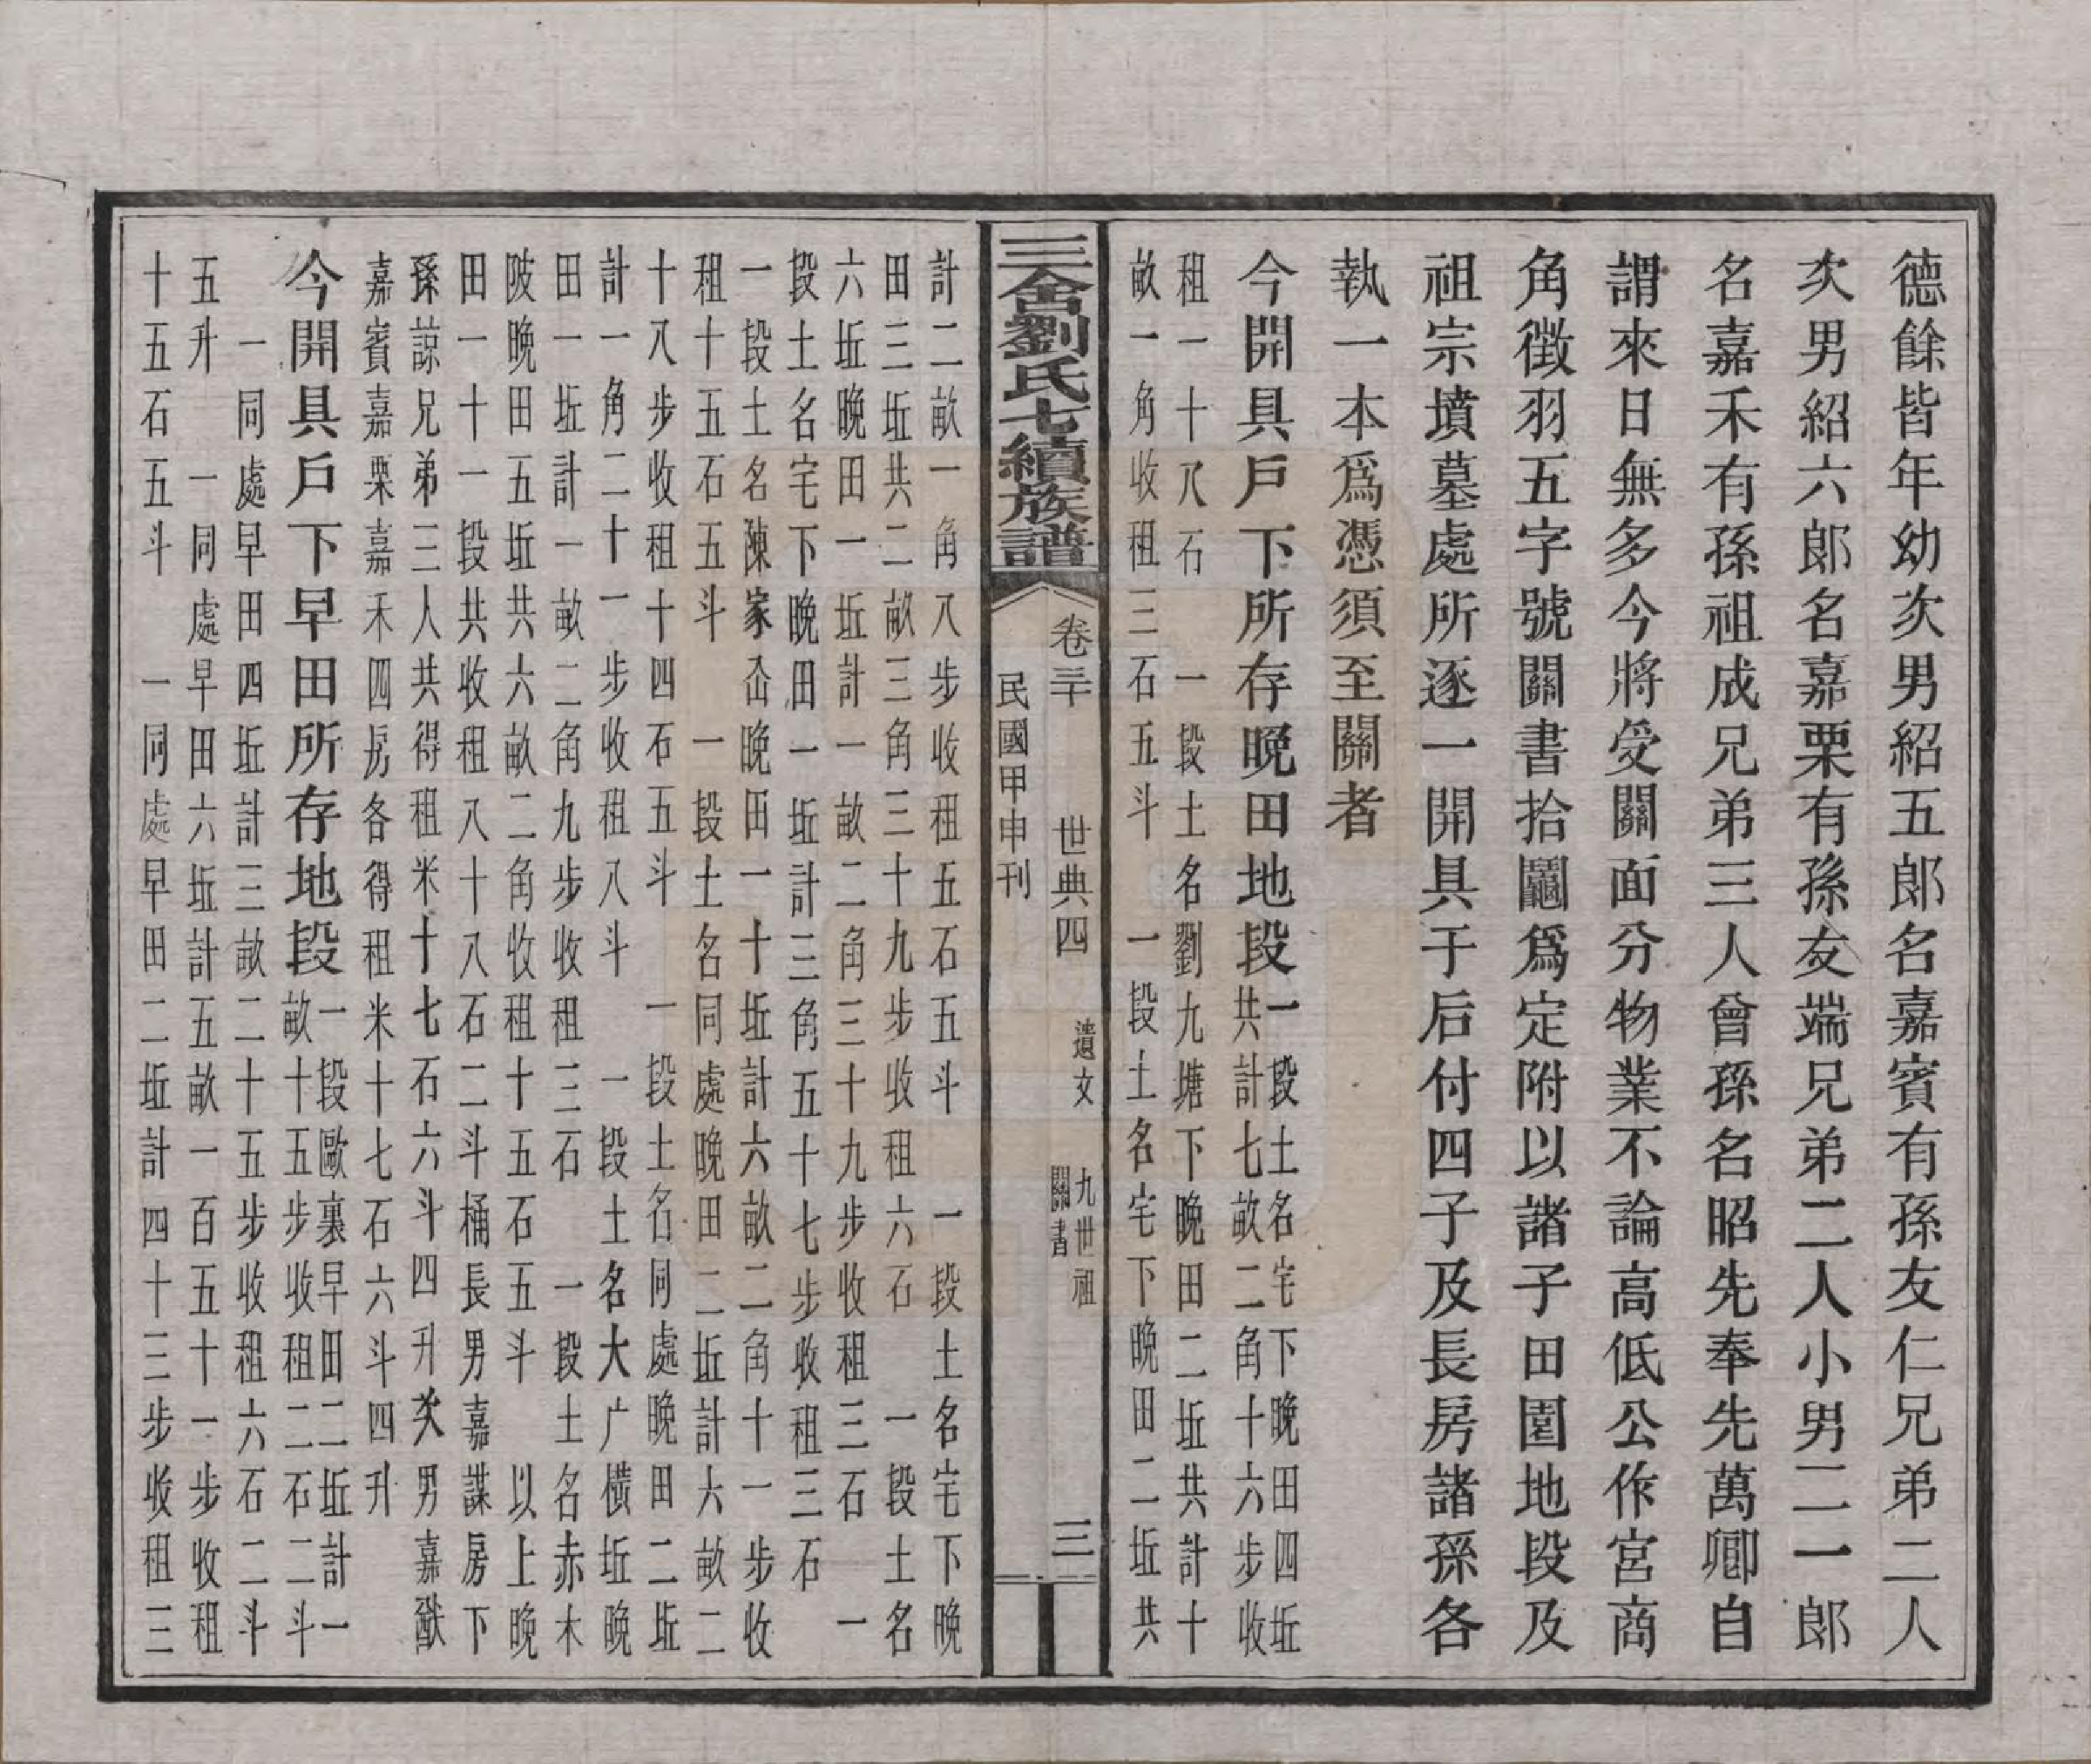 德餘皆年幼次男紹五郎名嘉賓有孫友仁兄弟二人
次男紹六郎名嘉栗有孫友端兄弟二人小男二一郎
名嘉禾有孫祖成兄弟三人曾孫名昭先奉先萬卿自
謂來日無多今將受關面分物業不論高低公作宮商
角徵羽五字號關書拾鬮爲定附以諸子田園地段及
祖宗墳墓處所逐一開具于后付四子及長房諸孫各
執一本爲憑須至關者
今開具戶下所存晚田地段
一段土名宅下晚田四坵
共計七畝二角十六步收
租一十八石　一段土名劉九塘下晚田二坵共計十
畝一角收租三石五斗　一段土名宅下晚田二坵共
三舍劉氏七續族譜
卷三十　世典四　遺文　九世祖
關書
三
民國甲申刊
計二畝一角八步收租五石五斗　一段土名宅下晚
田三坵共二畝三角三十九步收租六石　一段土名
六坵晚田一坵計一畝二角三十九步收租三石　一
段土名宅下晚田一坵計三角五十七步收租三石
一段土名陳家㟃晚田一十坵計六畝二角十一步收
租十五石五斗　一段土名同處晚田二坵計六畝二
十八步收租十四石五斗　一段土名同處晚田二坵
計一角二十一步收租八斗　一段土名大广橫坵晚
田一坵計一畝二角九步收租三石　一段土名赤木
陂晚田五坵共六畝二角收租十五石五斗　以上晚
田一十一段共收租八十八石二斗桶長男嘉謀房下
孫諒兄弟三人共得租米十七石六斗四升次男嘉猷
嘉賓嘉栗嘉禾四房各得租米十七石六斗四升
今開具戶下早田所存地段
一段歐裏早田二坵計一
畝十五步收租二石二斗
一同處早田四坵計三畝二十五步收租六石二斗
五升　一同處早田六坵計五畝一百五十一步收租
十五石五斗　一同處早田二坵計四十三步收租三